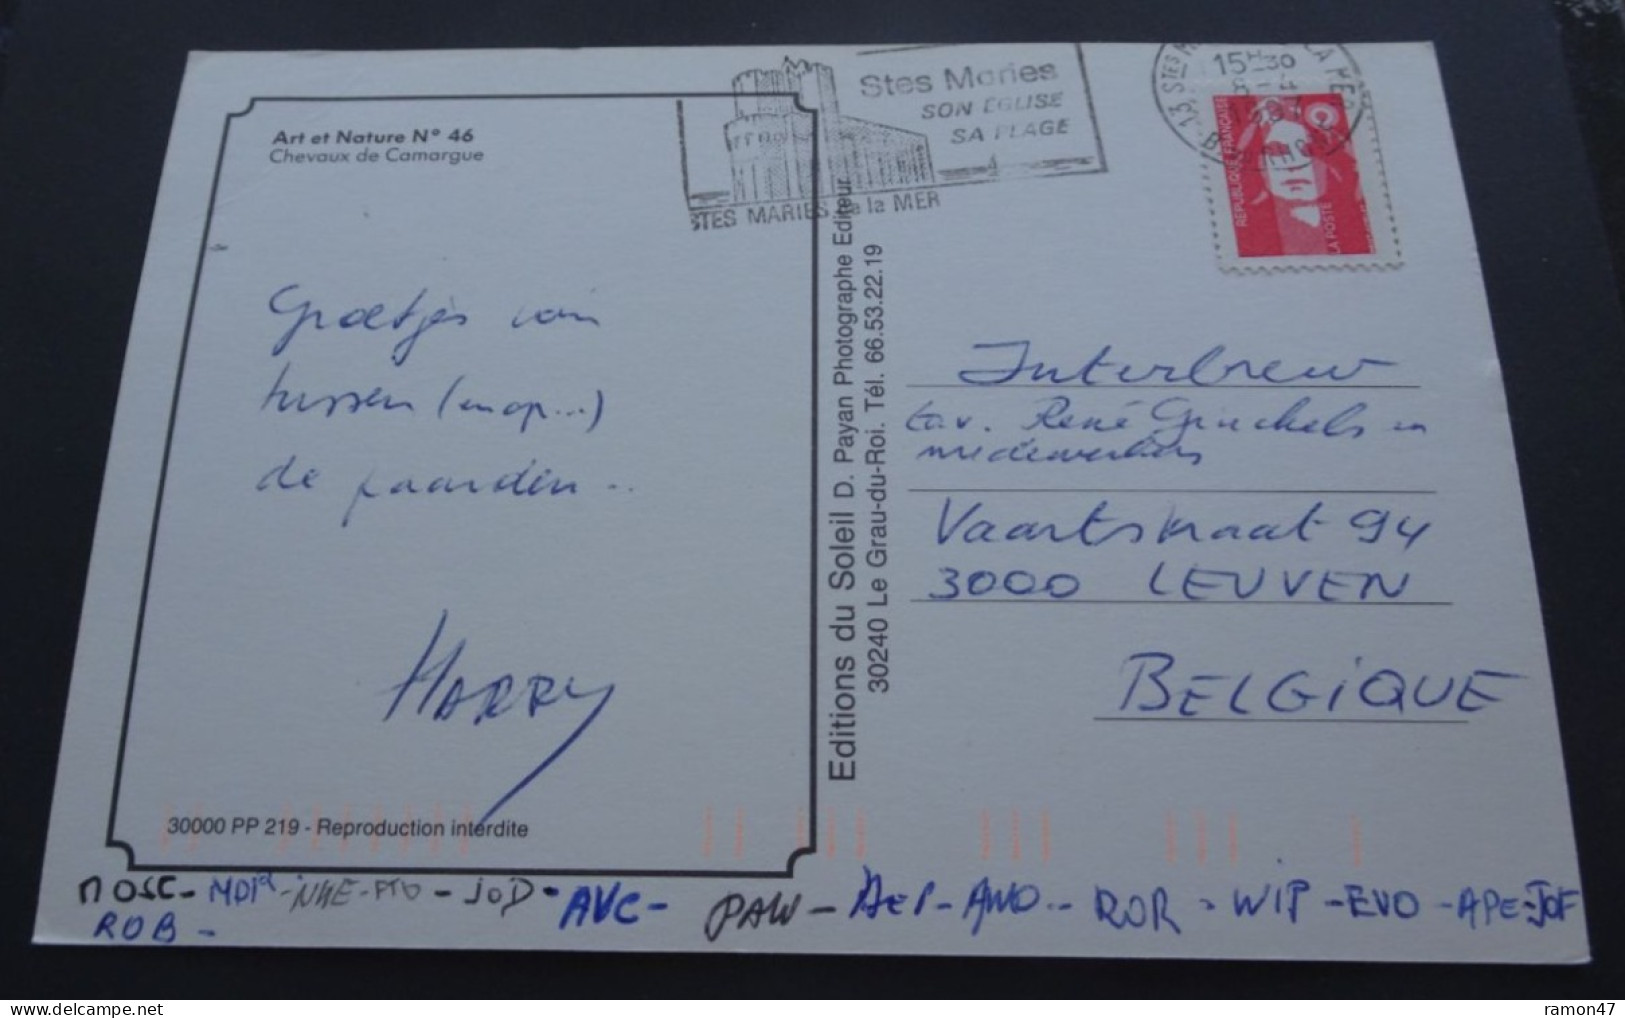 Art et Nature N° 46
Chevaux de Camargue
Groetjes van
tussen (en op...)
de paarden..
HARRY
30000 PP 219 - Reproduction interdite
Stes Maries
SON EGLISE
SA PLAGE
STES MARIES de la MER
Editions du Soleil D. Payan Photographe Editeur
30240 Le Grau-du-Roi. Tél. 66.53.22.19
15-30
13 STES
REPUBLIQUE FRANÇAISE
LA POSTE
Interbrew
t.a.v. René Ginckels en
medewerkers
Vaartstraat 94
3000 LEUVEN
BELGIQUE
JOD - AVC - PAW - AWO - ROR - WIP - EVO - APE - JOF
ROB -
ramon47